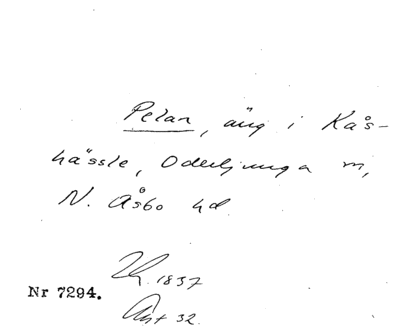 Pelan, äng i Kås-
hässle, Oderljunga m,
N. Åsbo hd
1837
Nr 7294.
32.